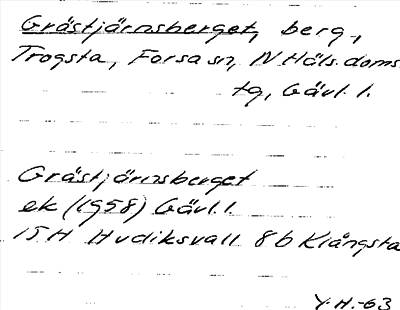 Gråstjärnsberget, berg,
Trogsta, Forsa sn, N Häls. doms
tg, Gävl. l.
Gråstjärnsberget
ek (1958) Gävl. l.
15H Hudiksvall 8b Klångsta
Y. H. -63